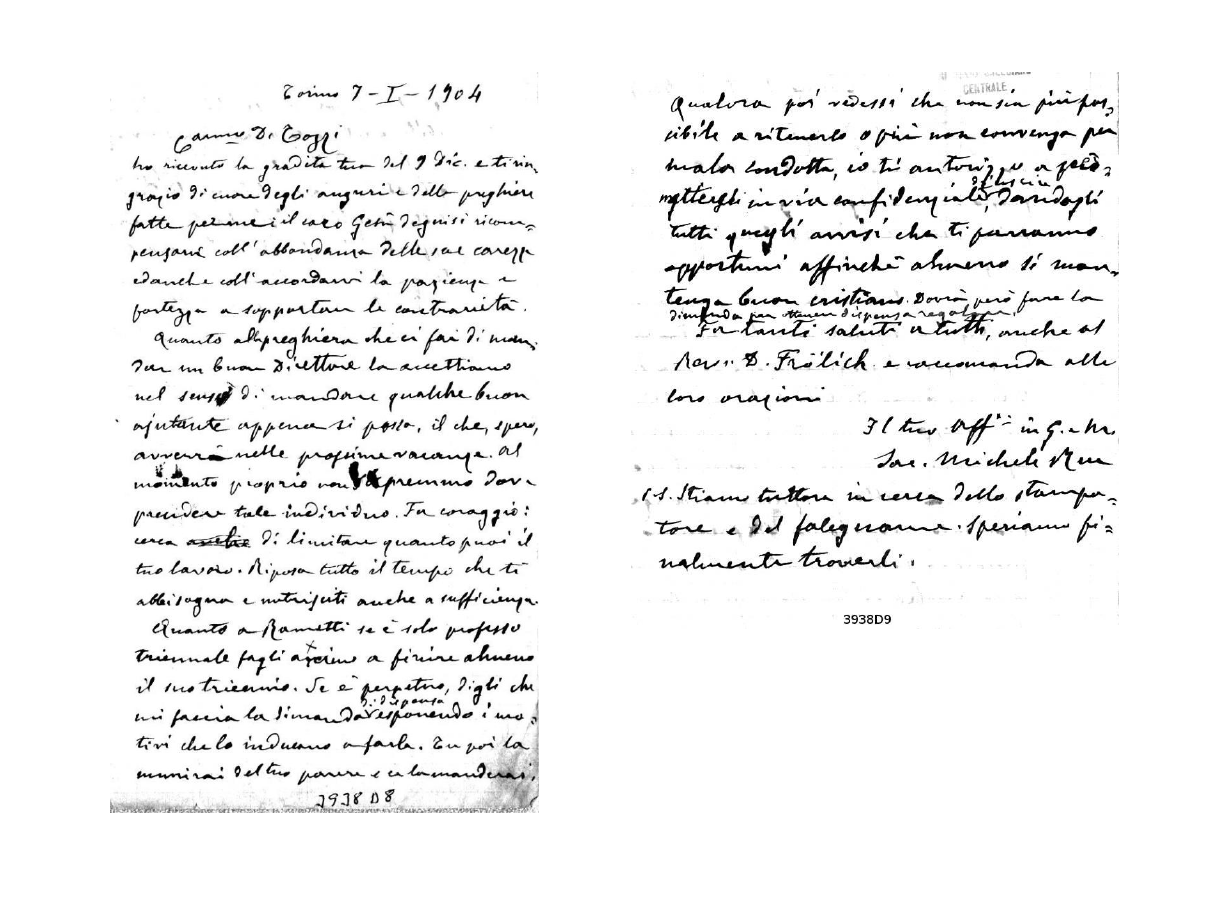 Torino 7-I-1904
Carmo D. Tozzi
ho ricevuto la gradita tua del 9 Dic. e ti rin-
grazio di cuore degli auguri e delle preghiere
fatte per me: il caro Gesù degnisi ricom-
pensarvi coll' abbondanza delle sue carezze
ed anche coll' accordarvi la pazienza e
fortezza a sopportar le contrarietà.
Quanto alla preghiera che ci fai di man-
dar un buon Direttore la accettiamo
nel senso di mandare qualche buon
ajutante appena si possa, il che, spero,
avverrà nelle prossime vacanze. Al
momento proprio non sapremmo dove
prendere tale individuo. Fa coraggio:
cerca anche di limitare quanto puoi il
tuo lavoro. Riposa tutto il tempo che ti
abbisogna e nutrisciti anche a sufficienza.
Quanto a Rametti se è solo professo
triennale fagli animo a finire almeno
il suo triennio. Se è perpetuo, digli che
mi faccia la dimanda di dispensa esponendo i mo-
tivi che lo inducono a farla. Tu poi la
munirai del tuo parere e ce la manderai.
3938 D8
CENTRALE
Qualora poi vedessi che non sia più pos-
sibile a ritenerlo o più non convenga per
mala condotta, io ti autorizzo a
mettergli in via confidenziale, dandogli
tutti quegli avvisi che ti parranno
opportuni affinchè almeno si man-
tenga buon cristiano. Dovrà però fare la
dimanda per ottenere dispensa regolare.
Fa tanti saluti a tutti, anche al
Rev. D. Frölich e raccomanda alle
loro orazioni
Il tuo aff. in G. e M.
Sac. Michele Rua
P.S. Stiamo tuttora in cerca dello stampa-
tore e del falegname. Speriamo fi-
nalmente trovarli.
3938D9